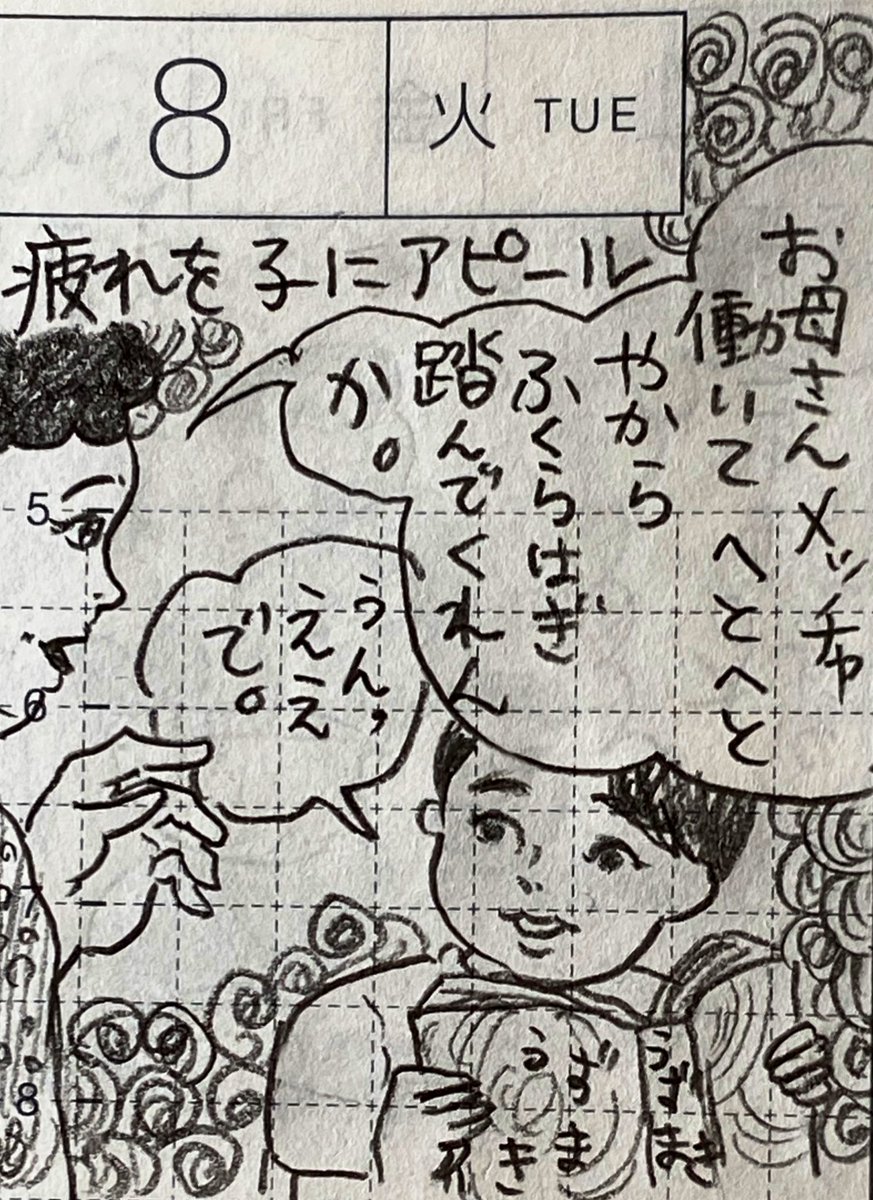 8
火 TUE
疲れを子にアピール
お母さんメッチャ
働いてへとへと
やから
ふくらはぎ
踏んでくれん
か。
うん、
ええ
で。
5
7
8
うずまき
うずまき